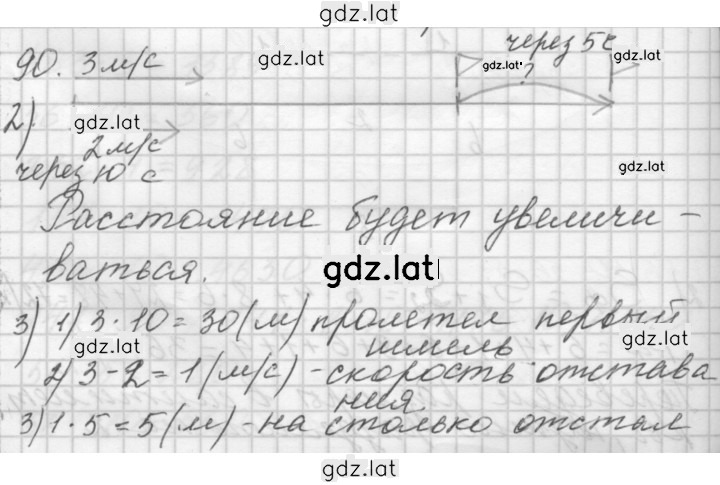 gdz.lat
через 5с
90. 3 м/с
gdz.lat
gdz.lat
gdz.lat
?
2)
gdz.lat
2 м/с
через 10 с
gdz.lat
Расстояние будет увеличи-
ваться.
gdz.lat
3) 1) 3·10=30(м) пролетел первый
шмель
gdz.lat
gdz.lat
2) 3-2=1(м/с)-скорость отстава
ния
3) 1·5=5(м)-на столько отстал
gdz.lat